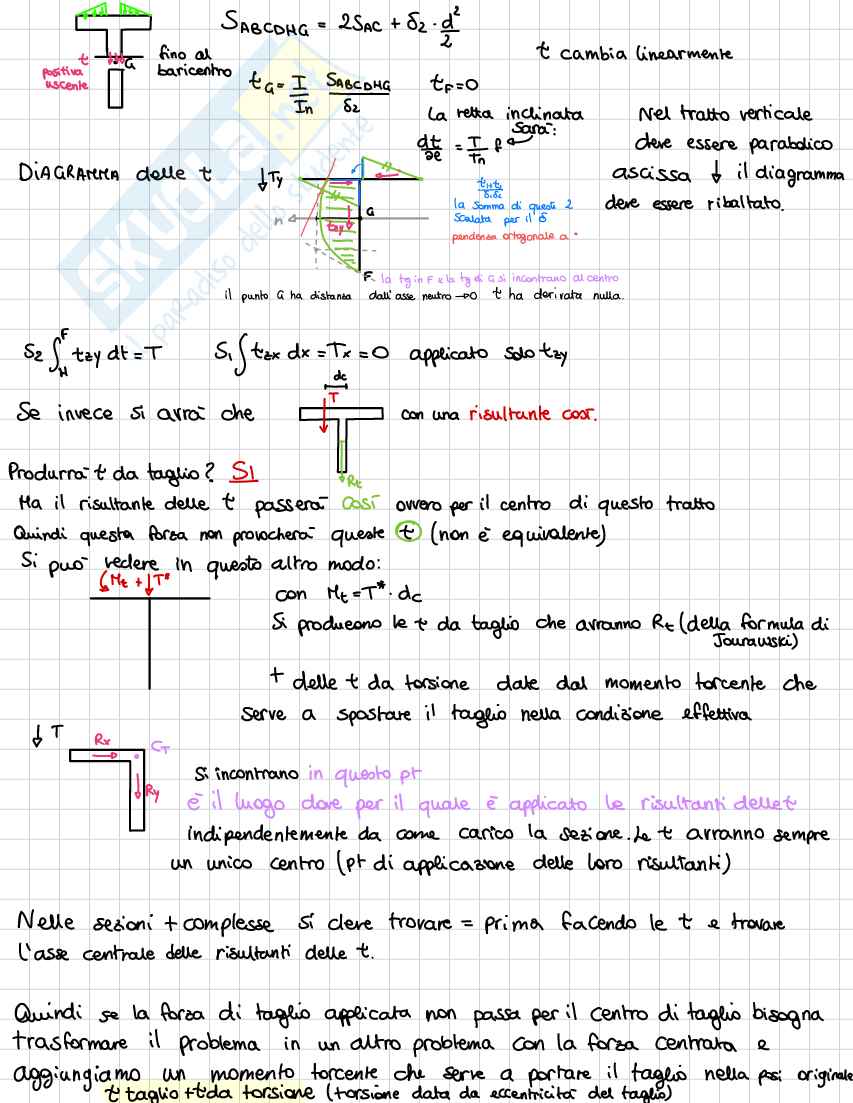 S_ABCDHG = 2S_AC + δ2 · d²/2
t cambia linearmente
t
G
positiva uscente
fino al baricentro
t_G = I/I_n S_ABCDHG/δ2
t_F = 0
La retta inclinata sarà:
dt/∂e = T/I_n f
Nel tratto verticale
deve essere parabolico
ascissa ↓ il diagramma
deve essere ribaltato.
DIAGRAMMA delle t
↓Ty
n
G
tzy
F
la somma di questi 2
scalata per il δ
pendenza ortogonale a
la tg in F e la tg di G si incontrano al centro
il punto G ha distanza dall'asse neutro → 0 t ha derivata nulla.
S2 ∫_H^F tzy dt = T
S1 ∫ tzx dx = Tx = 0 applicato solo tzy
dc
T
Rt
Se invece si avrà che
con una risultante così.
Produrrà t da taglio? SI
Ma il risultante delle t passerà così ovvero per il centro di questo tratto
Quindi questa forza non provocherà queste t (non è equivalente)
Si può vedere in questo altro modo:
Mt + T*
con Mt = T* · dc
Si producono le t da taglio che avranno Rt (della formula di Jourawski)
+ delle t da torsione date dal momento torcente che
serve a spostare il taglio nella condizione effettiva
↓ T
Rx
CT
Ry
Si incontrano in questo pt
è il luogo dove per il quale è applicato le risultanti delle t
indipendentemente da come carico la sezione. Le t avranno sempre
un unico centro (pt di applicazione delle loro risultanti)
Nelle sezioni + complesse si deve trovare = prima facendo le t e trovare
l'asse centrale delle risultanti delle t.
Quindi se la forza di taglio applicata non passa per il centro di taglio bisogna
trasformare il problema in un altro problema con la forza centrata e
aggiungiamo un momento torcente che serve a portare il taglio nella posi originale
t taglio + t da torsione (torsione data da eccentricità del taglio)
SKUOLA.net
il paradiso dello studente